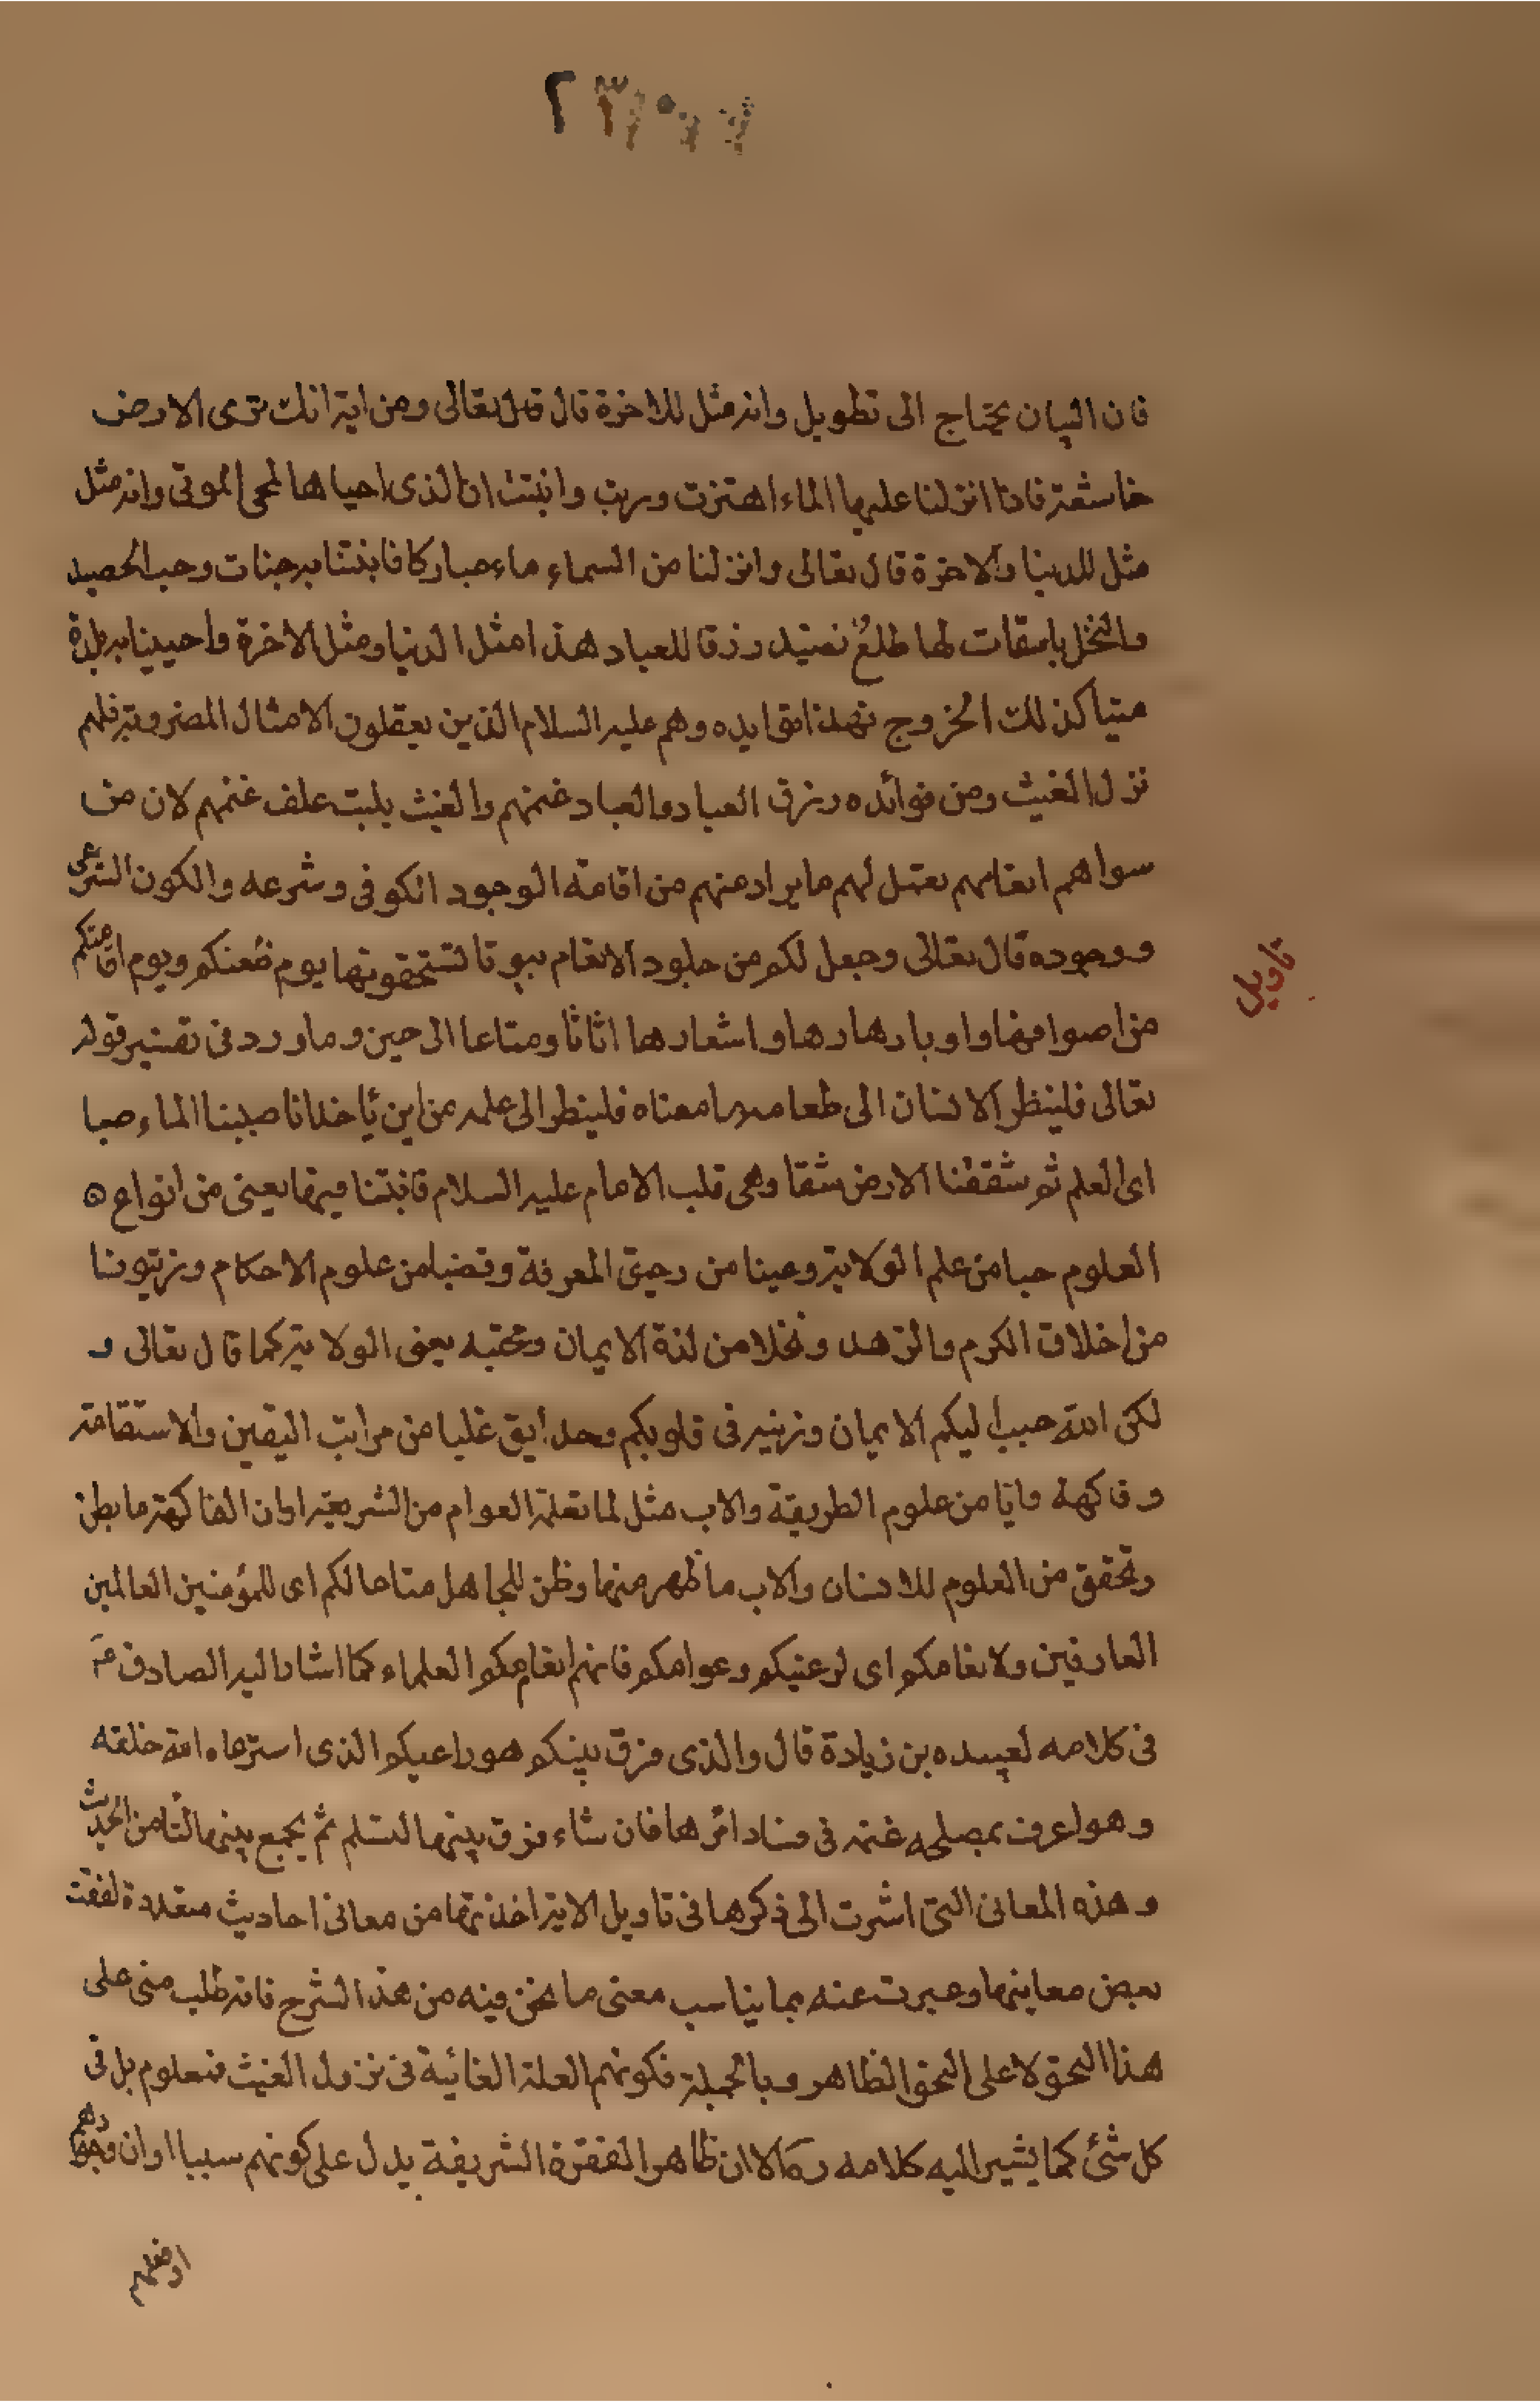 فان البيان يحتاج الى تطويل وانه مثل للاخرة قال قال تعالى ومن ايته انك ترى الارض
خاشعة فاذا انزلنا عليها الماء اهتزت وربت وانبتت ان الذى احياها لمحى الموتى وانه مثل
مثل للدينا والاخرة قال تعالى وانزلنا من السماء ماء مباركا فانبتنا به جنات وحب الحصيد
والنخل باسقات لها طلعٌ نضيد رزقا للعباد هذا مثل الدنيا ومثل الاخرة واحيينا به بلدة
ميتا كذلك الخروج فهذا وهم عليه السلام الذين يعقلون الامثال المضروبة فلهم
نزل الغيث ومن فوائده رزق العباد والعباد غنمهم والغيث ينبت علف غنمهم لان من
سواهم انعامهم تعمل لهم ما يراد منهم من اقامة الوجود الكونى وشرعه والكون الشرعى
ووجوده قال تعالى وجعل لكم من جلود الانعام بيوتا تستخفونها يوم ضعنكم ويوم اقامتكم
تاويل
من اصوافها واوبارها رها واشعارها اثاثا ومتاعا الى حين وما ورد فى تفسير قوله
تعالى فلينظر الانسان الى طعامه ما معناه فلينظر الى علمه من اين يأخذ انا صببنا الماء صبا
اى العلم ثم شققنا الارض شقا وهى قلب الامام عليه السلام فانبتنا فيها يعنى من انواع ه
العلوم حبا من علم الولاية وعينا من رحيق المعرفة وقضبا من علوم الاحكام وزيتونا
من اخلاق الكرم والزهد ونخلا من لذة الايمان ومحتبه يعنى الولاية كما قال تعالى و
لكن الله حبب اليكم الايمان وزينه فى قلوبكم وحدايق غلبا من مراتب اليقين والاستقامة
وفاكهة وابا من علوم الطريقة والاب مثل لما تعلمة العوام من الشريعة اوان الفاكهة ما بطن
وتحقق من العلوم للانسان والاب ما ظهر منها وظن للجاهل متاعا لكم اى للمؤمنين العالمين
العارفين ولانعامكم اى لرعيتكم وعوامكم فانهم انعامكم العلماء كما اشار اليه الصادق عـ
فى كلامه لعبيده بن زيادة قال والذى فرق بينكم هو راعيكم الذى استرعاه الله خلقه
وهو اعرف بمصلحه غنمه فى فساد امرها فان شاء فرق بينها لتسلم ثم يجمع بينها لتامن الحديث
وهذه المعانى التى اشرت الى ذكرها فى تاويل الاية اخذتها من معانى احاديث متعددة لفقت
بعض معاينها وعبرت عنه بما يناسب معنى ما نحن فيه من هذا الشرح فانه طلب منى على
هذا النحو لا على النحو الظاهر وبالجملة فكونهم العلة الغائية فى نزول الغيث فمعلوم بل فى
كل شئ كما يشير اليه كلامه ره الا ان ظاهر الفقرة الشريفة يدل على كونهم سببا اوان وجودهم
اوفعلهم